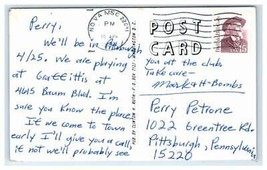 Perry,
We'll be in Pittsburgh
4/25. We are playing
at Graffittis at
4615 Baum Blvd. I'm
sure you know the place.
If we come to town
early I'll give you a call
if not we'll probably see
you at the club.
Take care—
Mark & H-Bombs
POST
CARD
PM
Perry Petrone
1022 Greentree Rd.
Pittsburgh, Pennsylvania
15220